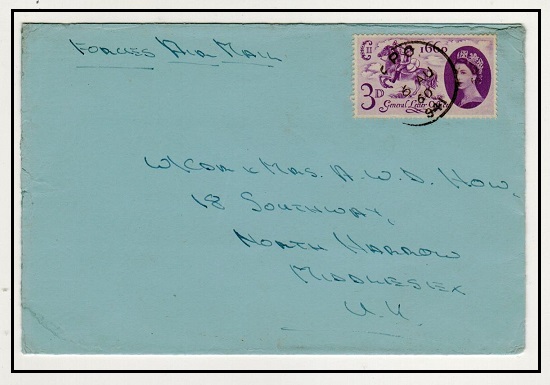 FORCES AIR MAIL
1660
3D
General Letter Office
W/CDR & MRS. A.W.D. HOW,
18 SOUTHWAY,
NORTH HARROW
MIDDLESEX
U.K.